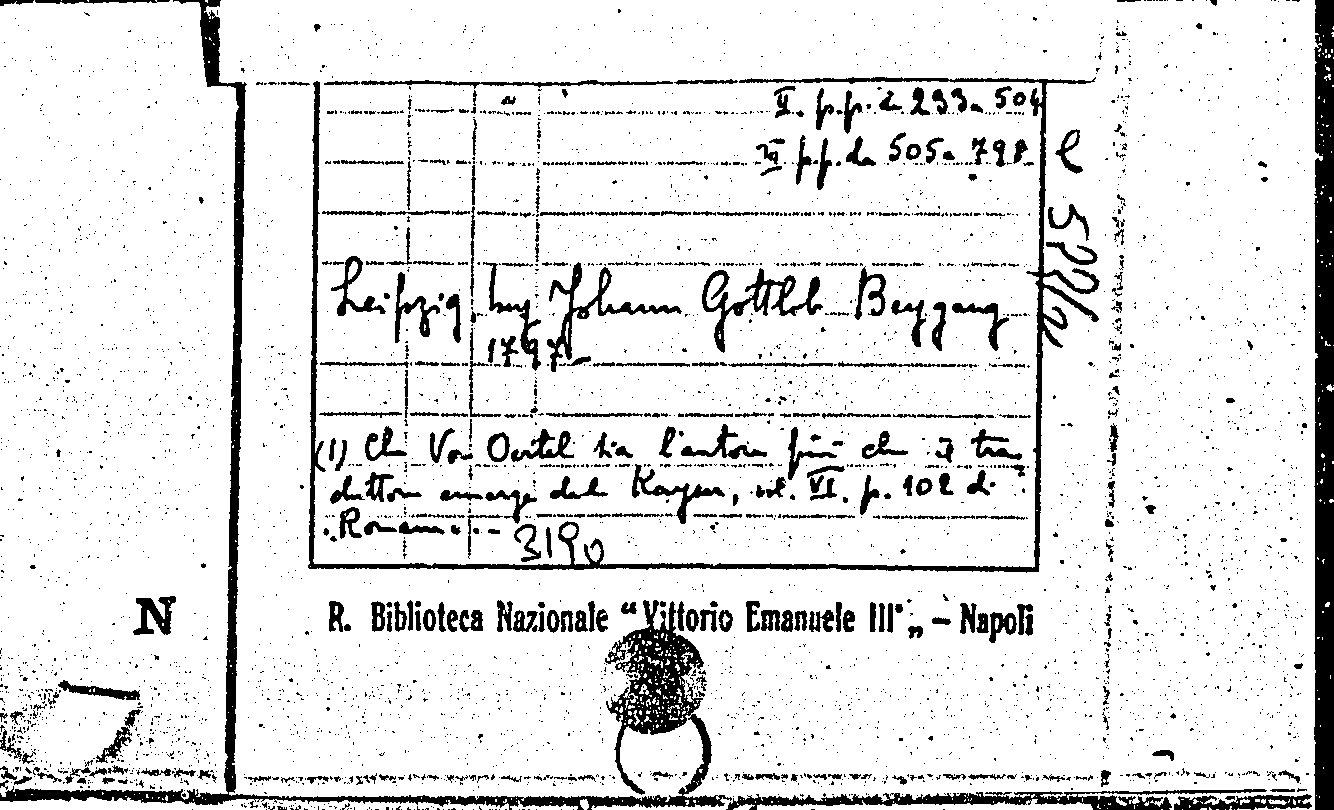 II. p.p. da 233 a 504
III p.p. da 505 a 798
Leipzig, bey Johann Gottlob Beygang
1797
(1) Che Von Oertel sia l'autore più che il tra-
duttore emerge dal Kayser, vol. VI. p. 102 di
Romane...
3190
N
R. Biblioteca Nazionale “Vittorio Emanuele III„ – Napoli